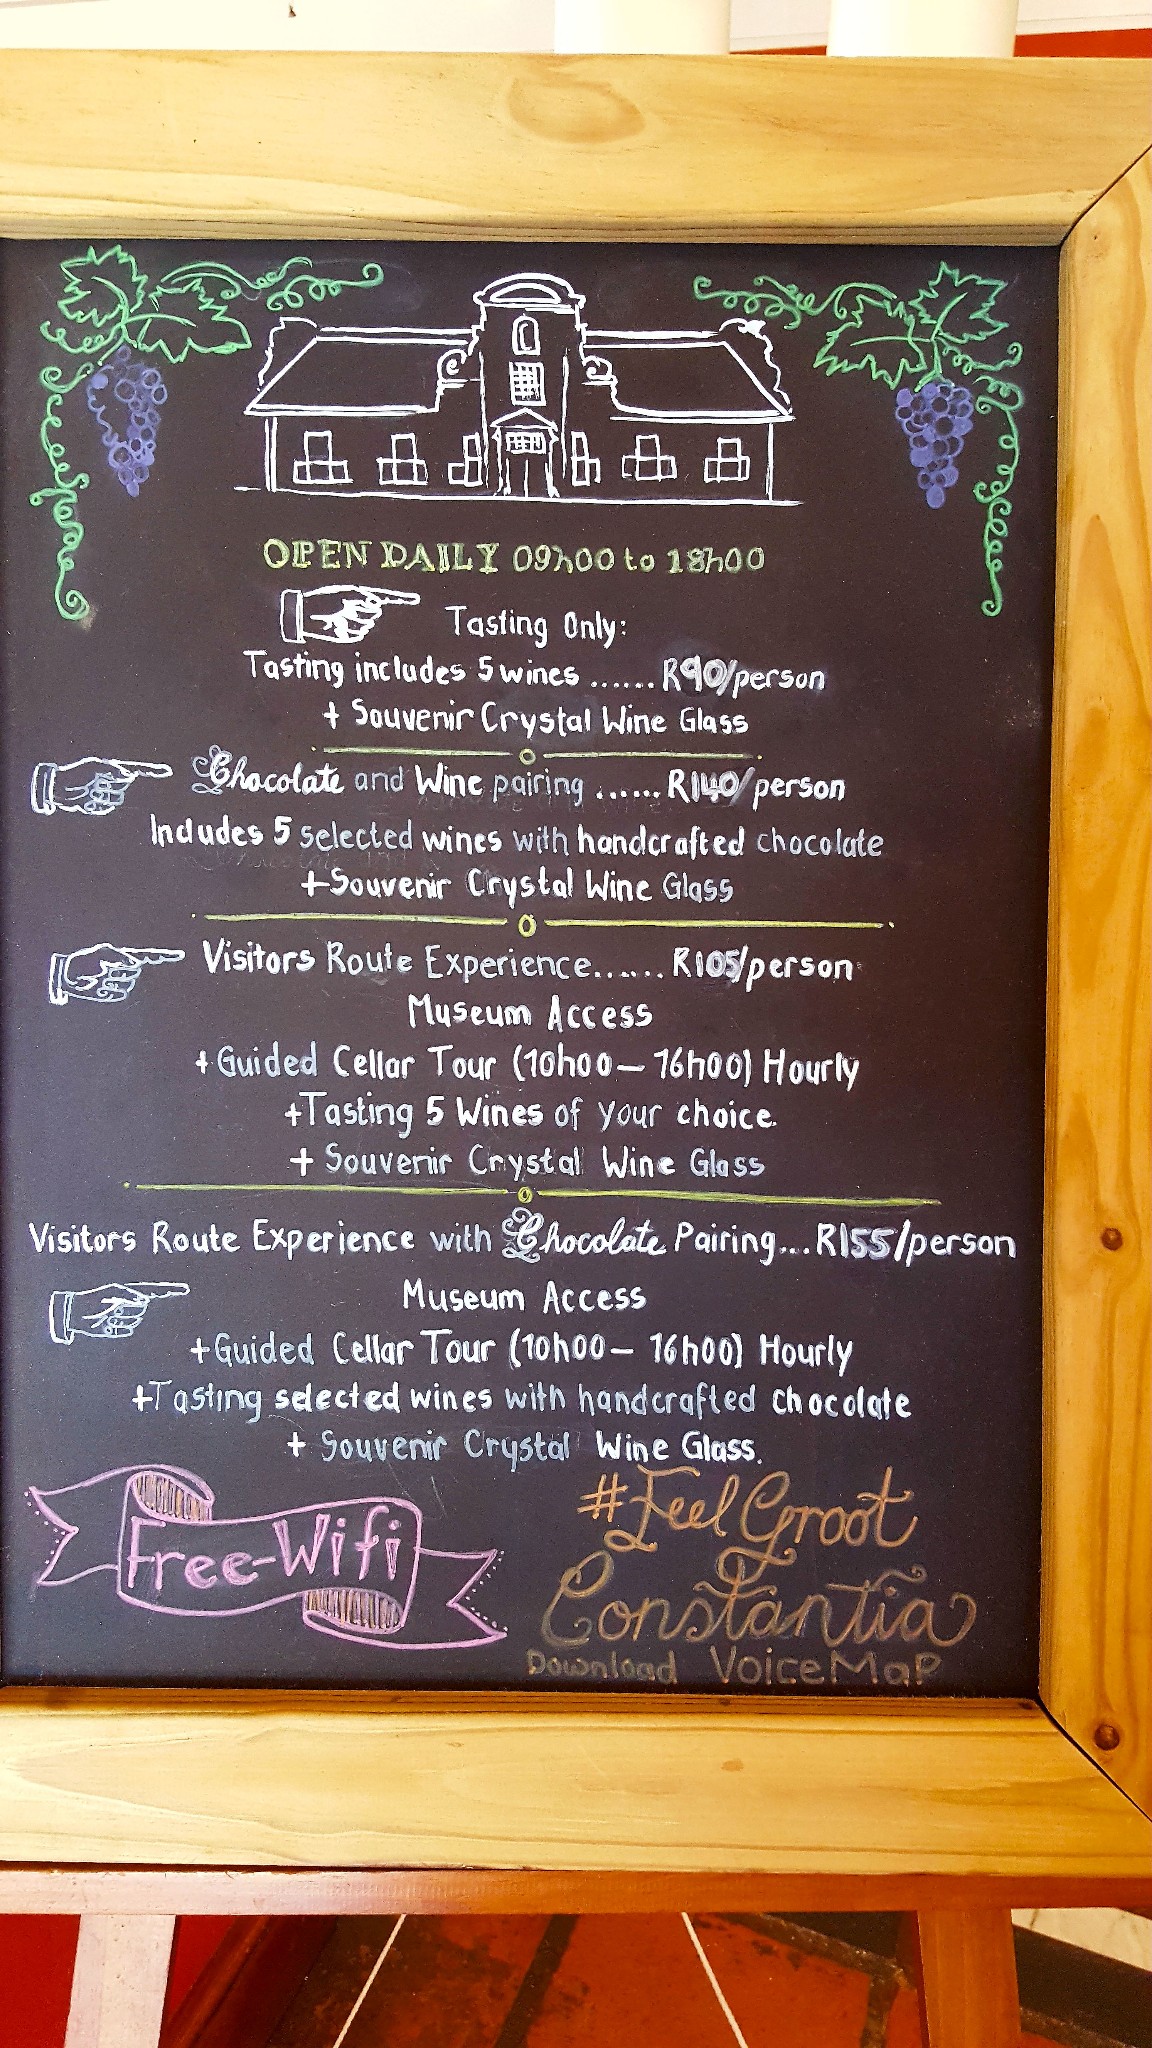 OPEN DAILY 09h00 to 18h00
Tasting Only:
Tasting includes 5 wines ...... R90/person
+ Souvenir Crystal Wine Glass
Chocolate and Wine pairing ...... R140/person
Includes 5 selected wines with handcrafted chocolate
+Souvenir Crystal Wine Glass
Visitors Route Experience...... R105/person
Museum Access
+Guided Cellar Tour (10h00 – 16h00) Hourly
+Tasting 5 Wines of your choice.
+ Souvenir Crystal Wine Glass
Visitors Route Experience with Chocolate Pairing...R155/person
Museum Access
+Guided Cellar Tour (10h00 – 16h00) Hourly
+Tasting selected wines with handcrafted chocolate
+ Souvenir Crystal Wine Glass.
Free-Wifi
#Feel Groot
Constantia
Download VoiceMaP